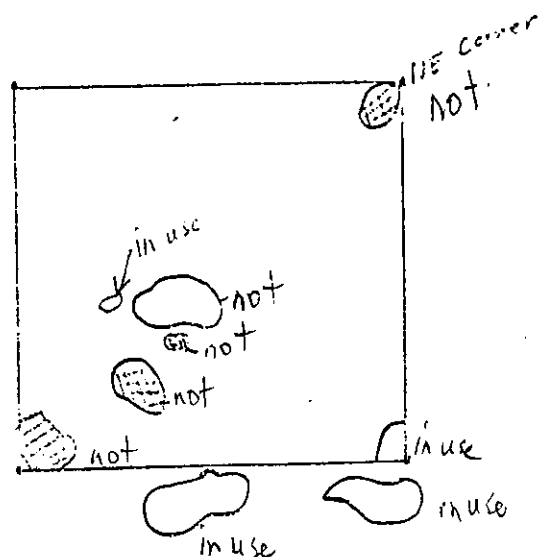 NE corner
not
in use
not
not
not
not
in use
in use
in use